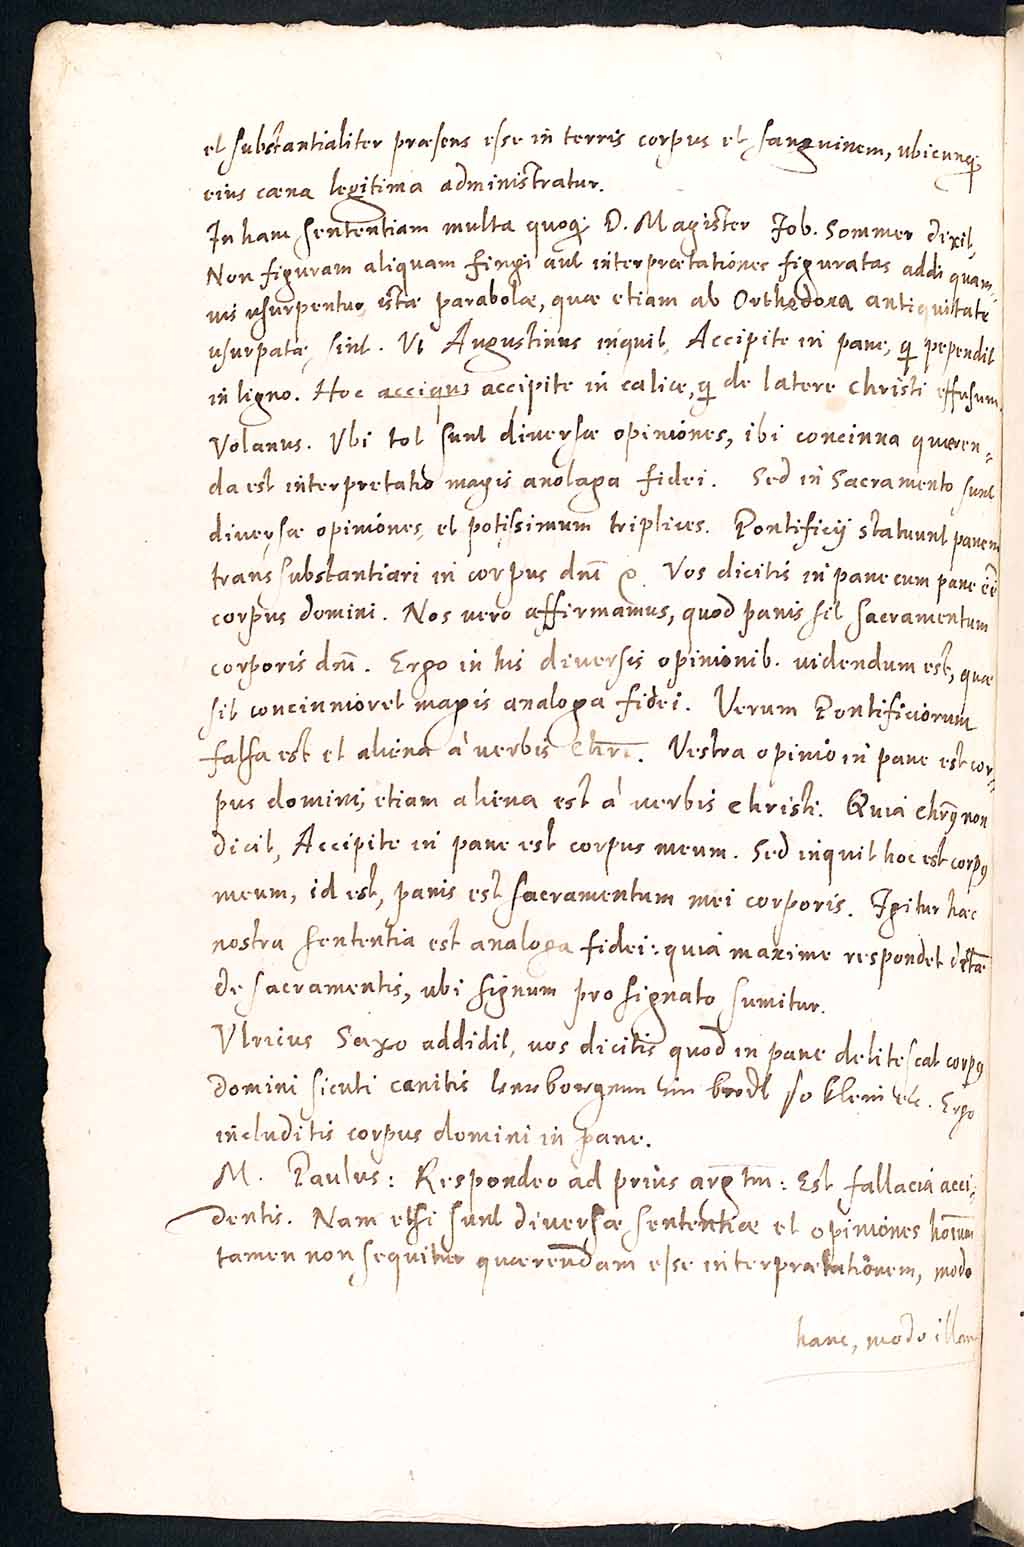 et substantialiter præsens esse in terris corpus et sanguinem, ubicunq;
eius cæna legitima administratur.
In hanc sententiam multa quoq; D. Magister Job. Sommer dixit,
Non figuram aliquam fingi aut interprætationes figuratas addi quam-
uis usurpentur istæ parabolæ, quæ etiam ab Orthodoxa antiquitate
usurpatæ sint. Ut Augustinus inquit, Accipite in pane, q pependit
in ligno. Hoc accipite in calice, q de latere Christi effusum.
Volanus. Ubi tot sunt diversæ opiniones, ibi concinna quæren-
da est interpretatio magis anologa fidei. Sed in Sacramento sunt
diversæ opiniones, et potissimum triplices. Pontificij statuunt panem
transsubstantiari in corpus dnī. Vos dicitis in pane cum pane eē
corpus domini. Nos vero affirmamus, quod panis sit sacramentum
corporis dnī. Ergo in his diversis opinionib. videndum est, quæ
sit concinnior et magis analoga fidei. Verum Pontificiorum
falsa est et aliena à verbis Chri. Vestra opinio in pane est cor-
pus domini, etiam aliena est à verbis Christi. Quia Chrs non
dicit, Accipite in pane est corpus meum. Sed inquit hoc est corpq
meum, id est, panis est sacramentum mei corporis. Igitur hæc
nostra sententia est analoga fidei: quia maxime respondet
de sacramentis, ubi signum pro signato sumitur.
Ulricus Saxo addidit, vos dicitis quod in pane delitescat corpq
domini sicuti canitis brodt so klein etc. Ergo
includitis corpus domini in pane.
M. Paulus: Respondeo ad prius argtm: Est fallacia acci-
dentis. Nam etsi sunt diversæ sententiæ et opiniones hoīum
tamen non sequitur quærendam esse interprætationem, modo
hanc, modo illam